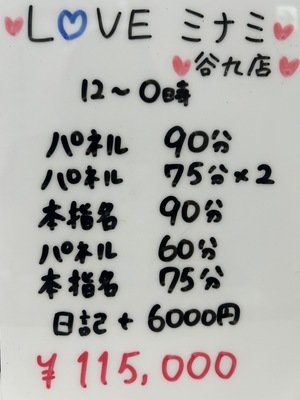 L♡VE ミナミ
谷九店
12〜0時
パネル 90分
パネル 75分×2
本指名 90分
パネル 60分
本指名 75分
日記 + 6000円
¥115,000